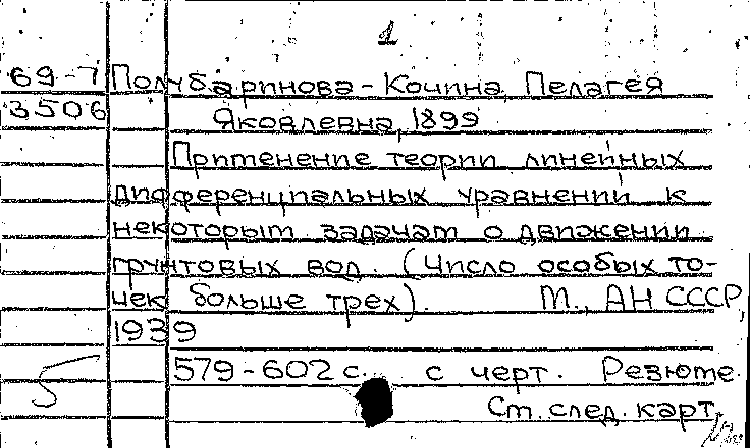 1
69-7 Полубаринова-Кочина, Пелагея
3506 Яковлевна, 1899
Применение теории линейных
дифференциальных уравнений к
некоторым задачам о движении
грунтовых вод. (Число особых то-
чек больше трех). М., АН СССР,
1939
579-602 с. с черт. Резюме
5 Ст. след. карт.